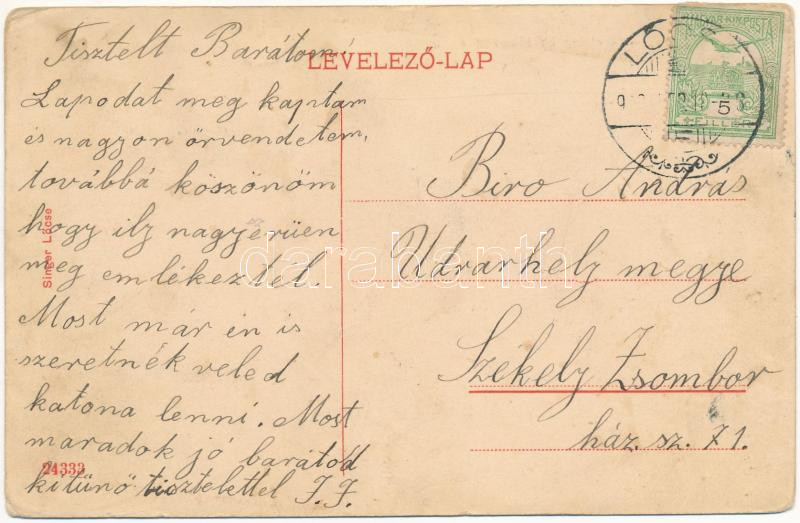 LEVELEZŐ-LAP
Tisztelt Barátom!
Lapodat meg kaptam
és nagyon örvendetem,
továbbá köszönöm
hogy ily nagyerüen
meg emlékeztel.
Most már én is
szeretnék veled
katona lenni. Most
maradok jó barátod
kitünő tisztelettel J. J.
Singer Lőcse
24333
MAGYAR KIR. POSTA
5
FILLÉR
Biro András
Udvarhely megye
Szekely Zsombor
ház. sz. 71.
darabanth